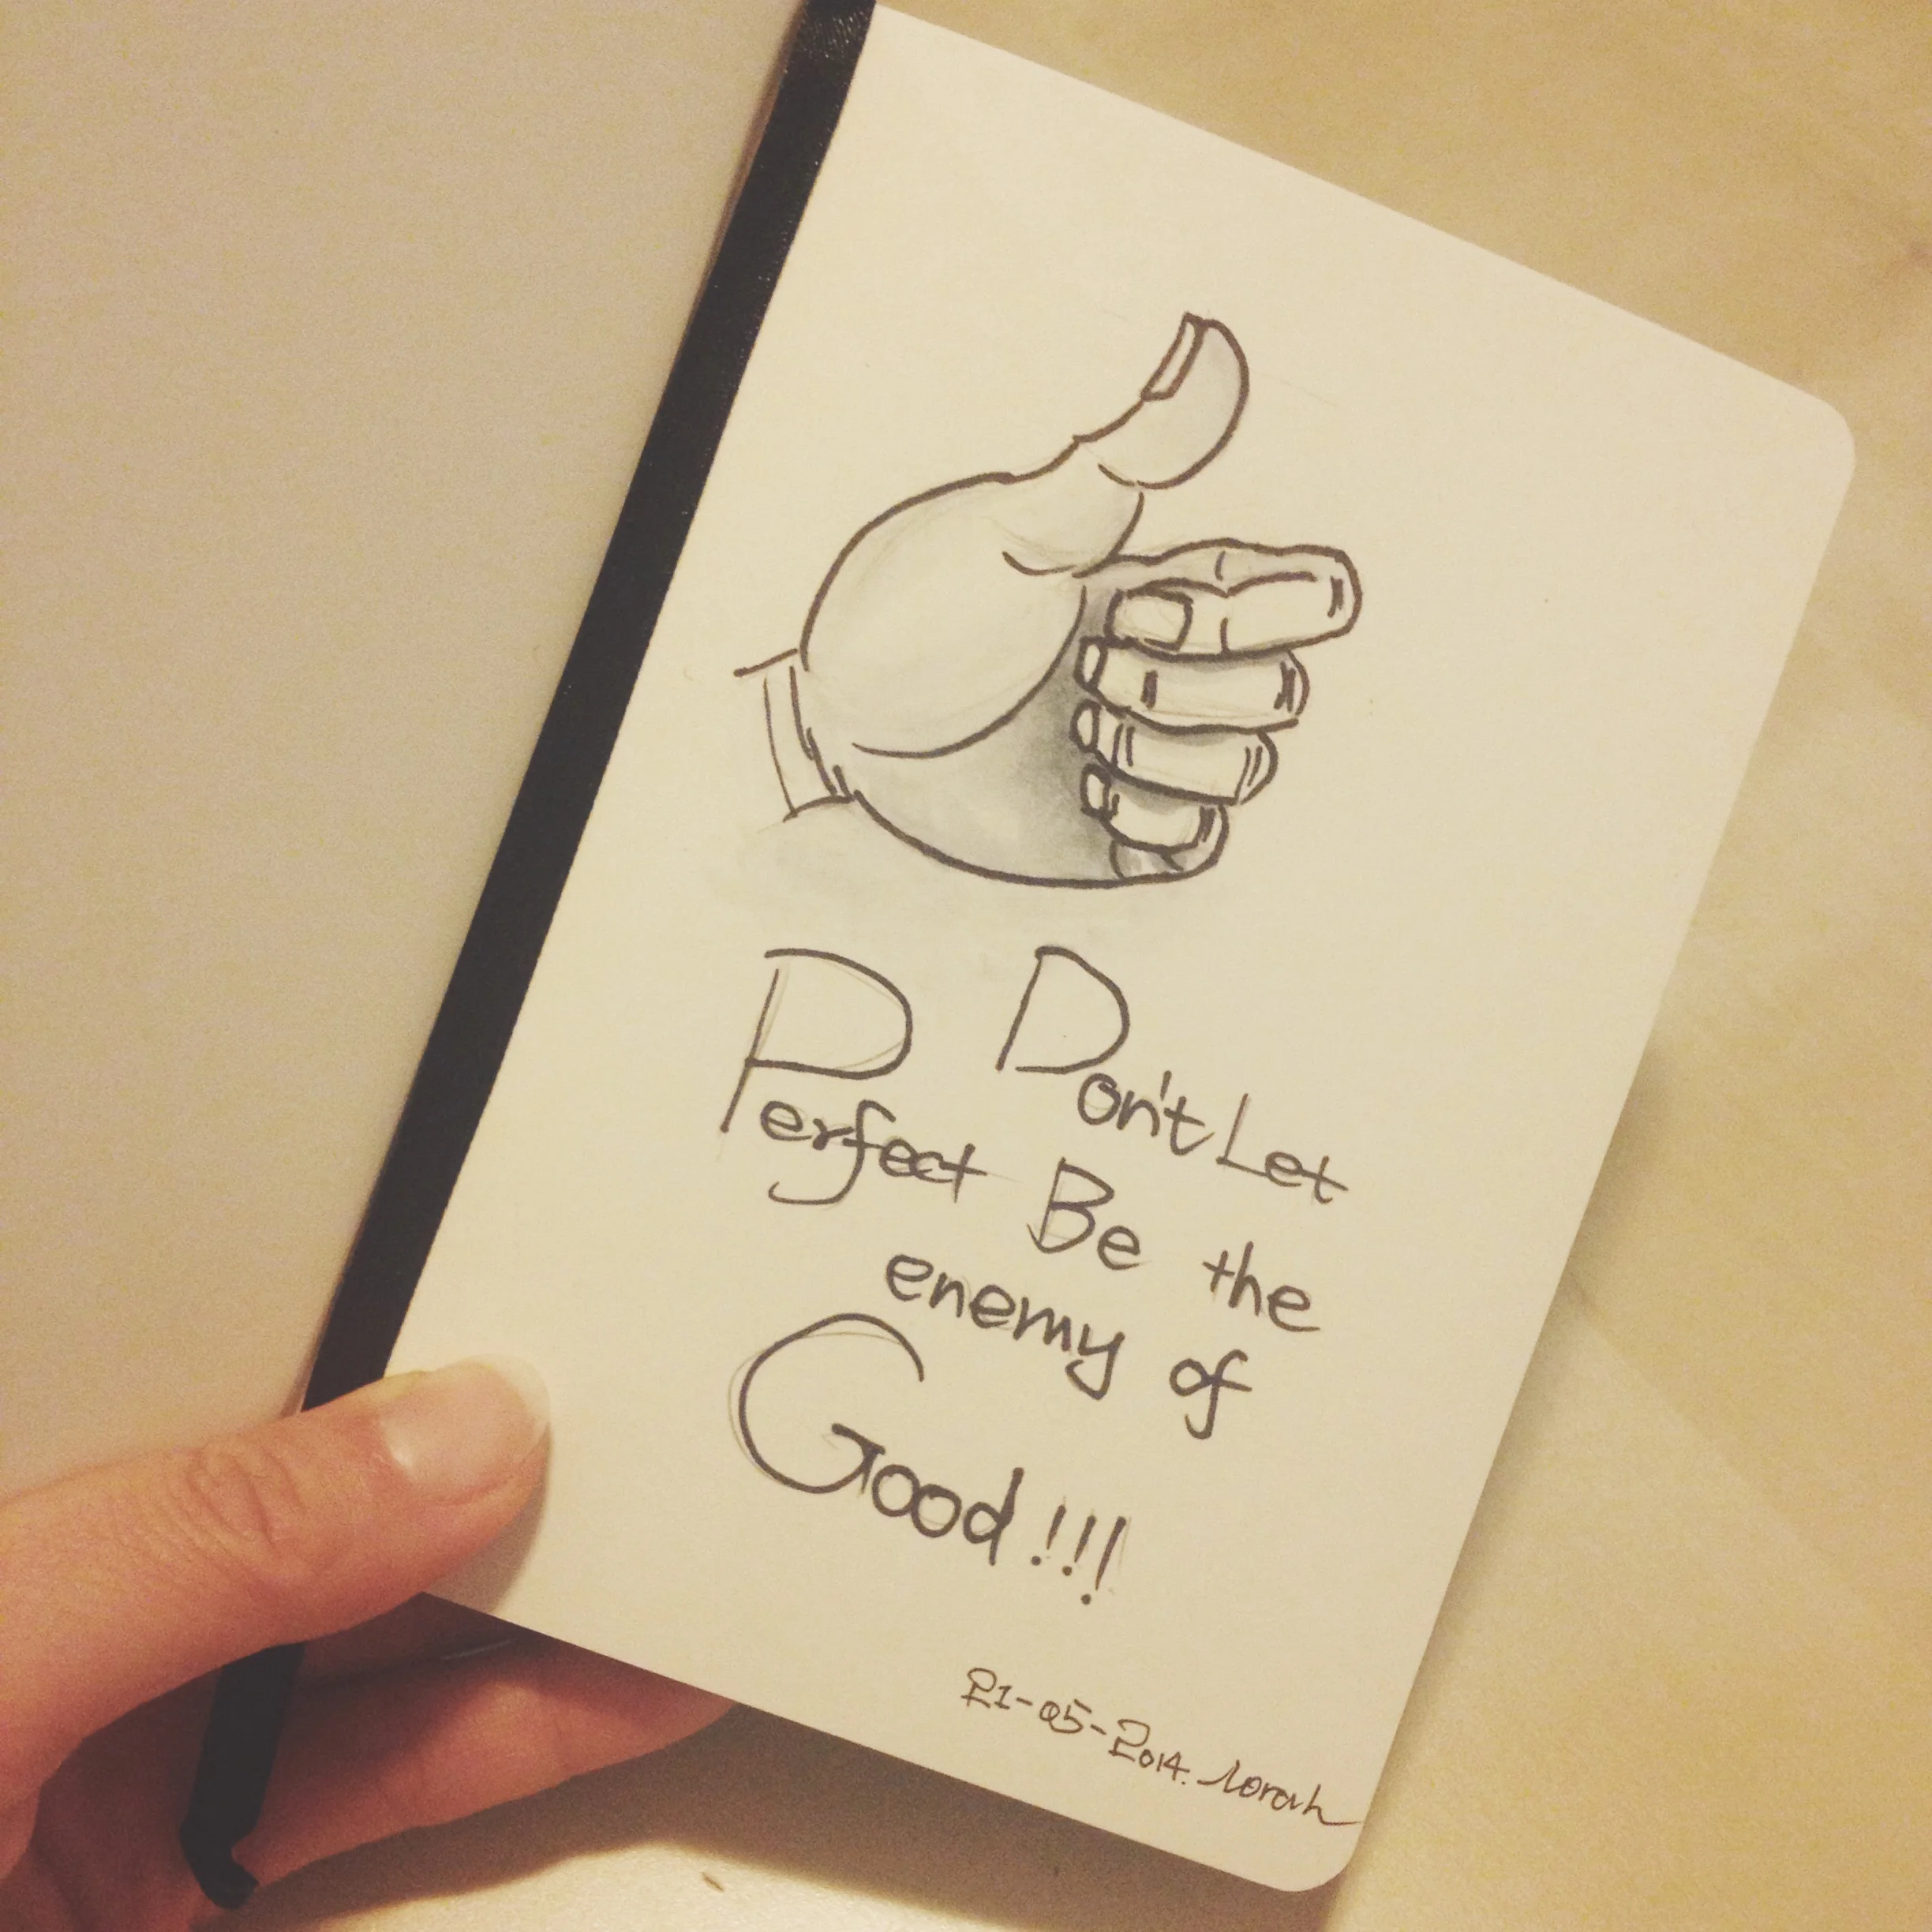 Don't Let
Perfect Be the
enemy of
Good!!!
21-05-2014. Norah